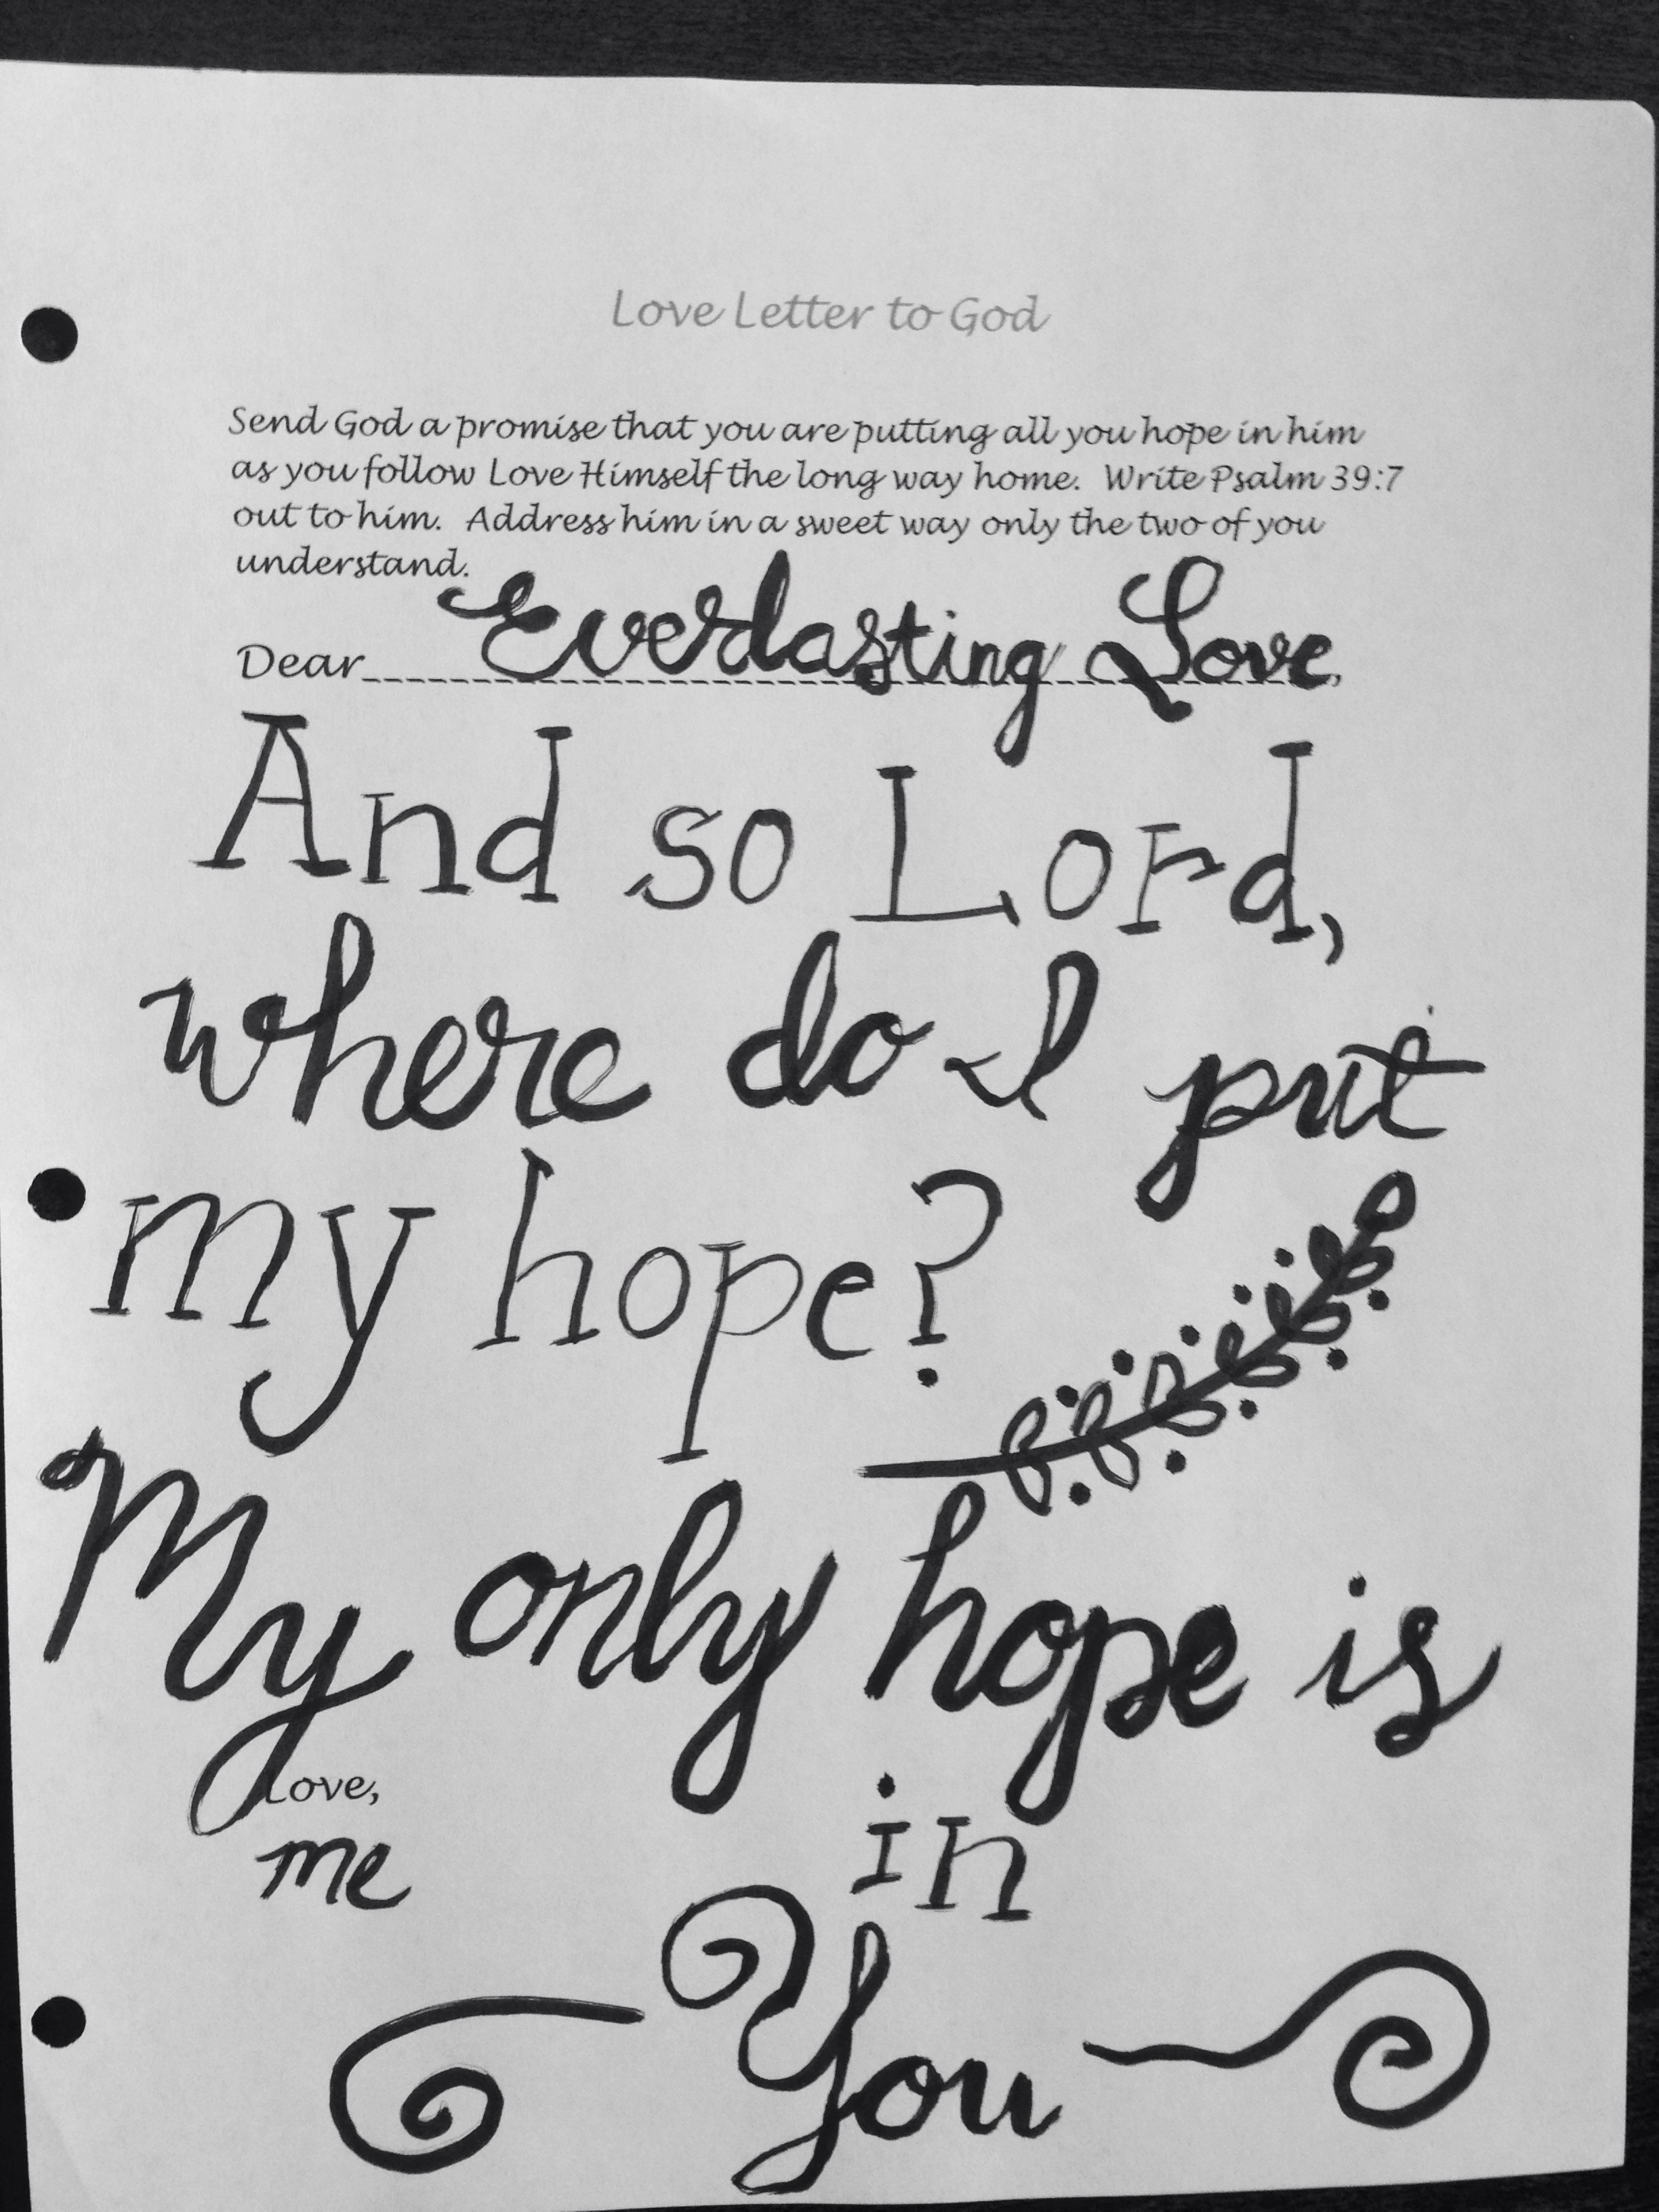 Love Letter to God
Send God a promise that you are putting all you hope in him
as you follow Love Himself the long way home. Write Psalm 39:7
out to him. Address him in a sweet way only the two of you
understand.
Dear Everlasting Love,
And so Lord,
where do I put
my hope?
My only hope is
Love,
in
me
You